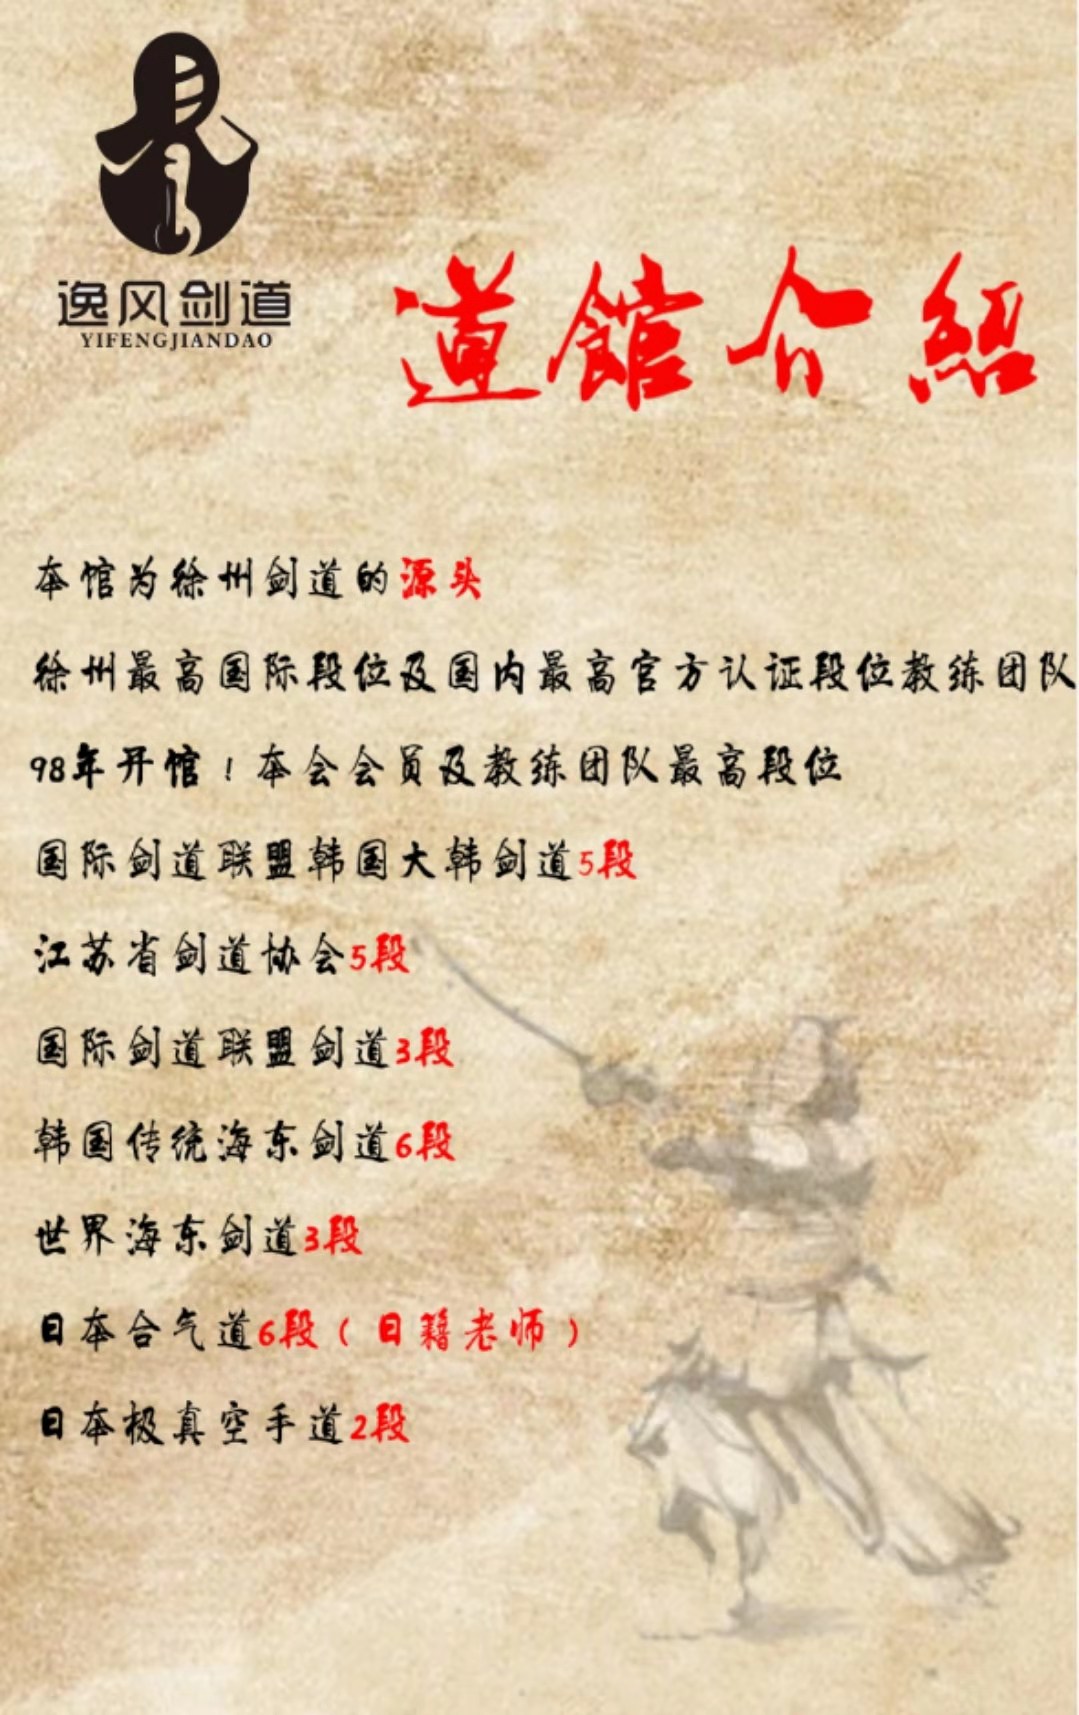 逸风剑道
YIFENGJIANDAO
道館介紹
本馆为徐州剑道的源头
徐州最高国际段位及国内最高官方认证段位教练团队
98年开馆！本会会员及教练团队最高段位
国际剑道联盟韩国大韩剑道5段
江苏省剑道协会5段
国际剑道联盟剑道3段
韩国传统海东剑道6段
世界海东剑道3段
日本合气道6段（日籍老师）
日本极真空手道2段